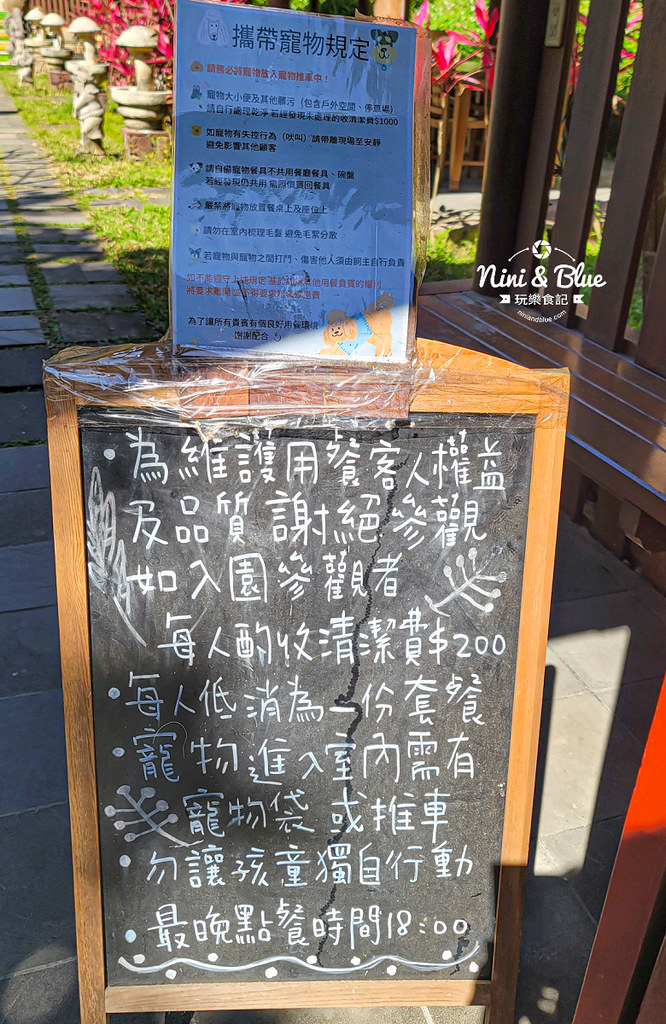 攜帶寵物規定
請務必將寵物放入寵物推車中！
寵物大小便及其他髒污（包含戶外空間、停車場）
請自行處理乾淨 若經發現未處理的收清潔費$1000
如寵物有失控行為（吠叫）請帶離現場至安靜
避免影響其他顧客
請自備寵物餐具不共用餐廳餐具、碗盤
若經發現仍共用 需照價買回餐具
嚴禁將寵物放置餐桌上及座位上
請勿在室內梳理毛髮 避免毛絮分散
若寵物與寵物之間打鬥、傷害他人須由飼主自行負責
如不能遵守上述規定 基於
他用餐貴賓的權利
將要求離開並不得要求
退費
為了讓所有貴賓有個良好用餐環境
謝謝配合
Nini & Blue
玩樂食記
niniandblue.com
・為維護用餐客人權益
及品質 謝絕參觀
如入園參觀者
每人酌收清潔費$200
・每人低消為一份套餐
・寵物進入室內需有
寵物袋 或推車
・勿讓孩童獨自行動
・最晚點餐時間18:00